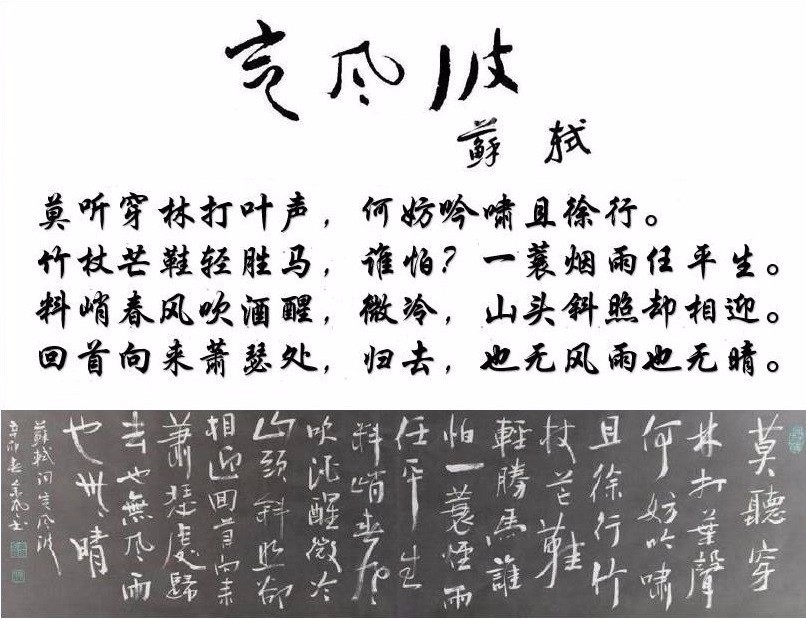 定风波
蘇軾
莫听穿林打叶声，何妨吟啸且徐行。
竹杖芒鞋轻胜马，谁怕？一蓑烟雨任平生。
料峭春风吹酒醒，微冷，山头斜照却相迎。
回首向来萧瑟处，归去，也无风雨也无晴。
莫聽穿
林打葉聲
何妨吟嘯
且徐行竹
杖芒鞋
輕勝馬誰
怕一蓑煙雨
任平生
料峭春風
吹酒醒微冷
山頭斜照卻
相迎回首向来
蕭瑟處歸
去也無風雨
也無晴
蘇軾词定风波